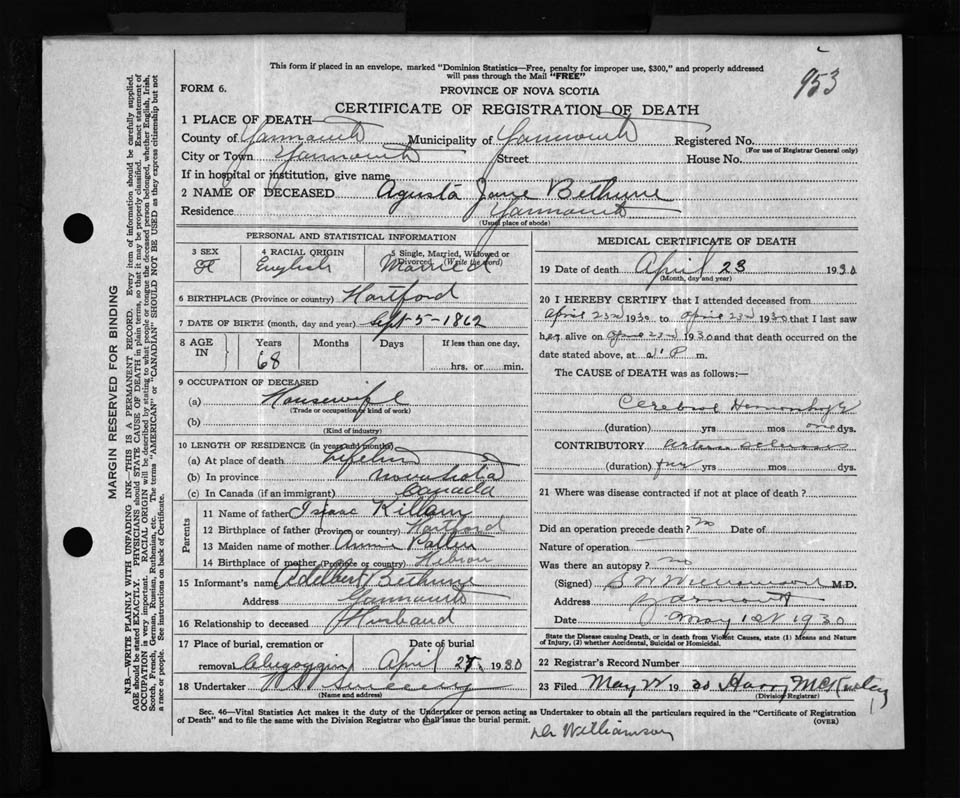 This form if placed in an envelope, marked "Dominion Statistics—Free, penalty for improper use, $300," and properly addressed
will pass through the Mail "FREE"
953
FORM 6.
PROVINCE OF NOVA SCOTIA
CERTIFICATE OF REGISTRATION OF DEATH
1 PLACE OF DEATH—
County of Yarmouth Municipality of Yarmouth Registered No.
(For use of Registrar General only)
City or Town Yarmouth Street House No.
If in hospital or institution, give name
2 NAME OF DECEASED Agusta Jane Bethune
Residence Yarmouth
(Usual place of abode)
PERSONAL AND STATISTICAL INFORMATION
3 SEX
F
4 RACIAL ORIGIN
English
5 Single, Married, Widowed or
Divorced (Write the word)
Married
6 BIRTHPLACE (Province or country) Hartford
7 DATE OF BIRTH (month, day and year) Sept 5 - 1862
8 AGE IN
Years Months Days If less than one day,
68 hrs. or min.
9 OCCUPATION OF DECEASED
(a) Housewife
(Trade or occupation or kind of work)
(b)
(Kind of industry)
10 LENGTH OF RESIDENCE (in years and months)
(a) At place of death Lifetime
(b) In province Nova Scotia
(c) In Canada (if an immigrant) Canada
Parents
11 Name of father Isaac Killam
12 Birthplace of father (Province or country) Hartford
13 Maiden name of mother Annie
14 Birthplace of mother (Province or country) Hebron
15 Informant's name Adelbert Bethune
Address Yarmouth
16 Relationship to deceased Husband
17 Place of burial, cremation or Date of burial
removal Chegoggin April 25 1930
18 Undertaker Sweeny
(Name and address)
MEDICAL CERTIFICATE OF DEATH
19 Date of death April 23 1930
(Month, day and year)
20 I HEREBY CERTIFY that I attended deceased from
April 23rd 1930 to April 23rd 1930 that I last saw
her alive on April 23rd 1930 and that death occurred on the
date stated above, at P m.
The CAUSE of DEATH was as follows:—
Cerebral Hemorrhage
(duration) yrs mos one dys.
CONTRIBUTORY arterio sclerosis
(duration) few yrs mos dys.
21 Where was disease contracted if not at place of death?
Did an operation precede death? no Date of
Nature of operation
Was there an autopsy? no
(Signed) S W Williamson M.D.
Address Yarmouth
Date May 1st 1930
State the Disease causing Death, or in death from Violent Causes, state (1) Means and Nature
of Injury, (2) whether Accidental, Suicidal or Homicidal.
22 Registrar's Record Number
23 Filed May 1930 Harry
(Division Registrar)
Sec. 46—Vital Statistics Act makes it the duty of the Undertaker or person acting as Undertaker to obtain all the particulars required in the "Certificate of Registration
of Death" and to file the same with the Division Registrar who shall issue the burial permit.
(OVER)
Dr Williamson
MARGIN RESERVED FOR BINDING
N.B.—WRITE PLAINLY WITH UNFADING INK—THIS IS A PERMANENT RECORD. Every item of information should be carefully supplied.
AGE should be stated EXACTLY. PHYSICIANS should STATE CAUSE OF DEATH in plain terms, so that it may be properly classified. Exact statement of
OCCUPATION is very important. RACIAL ORIGIN will be described by stating to what people or tongue the deceased person belonged, whether English, Irish,
Scotch, French, German, Russian, Ruthenian, etc. The terms "AMERICAN" or "CANADIAN" SHOULD NOT BE USED as they express citizenship but not
a race or people. See instructions on back of Certificate.